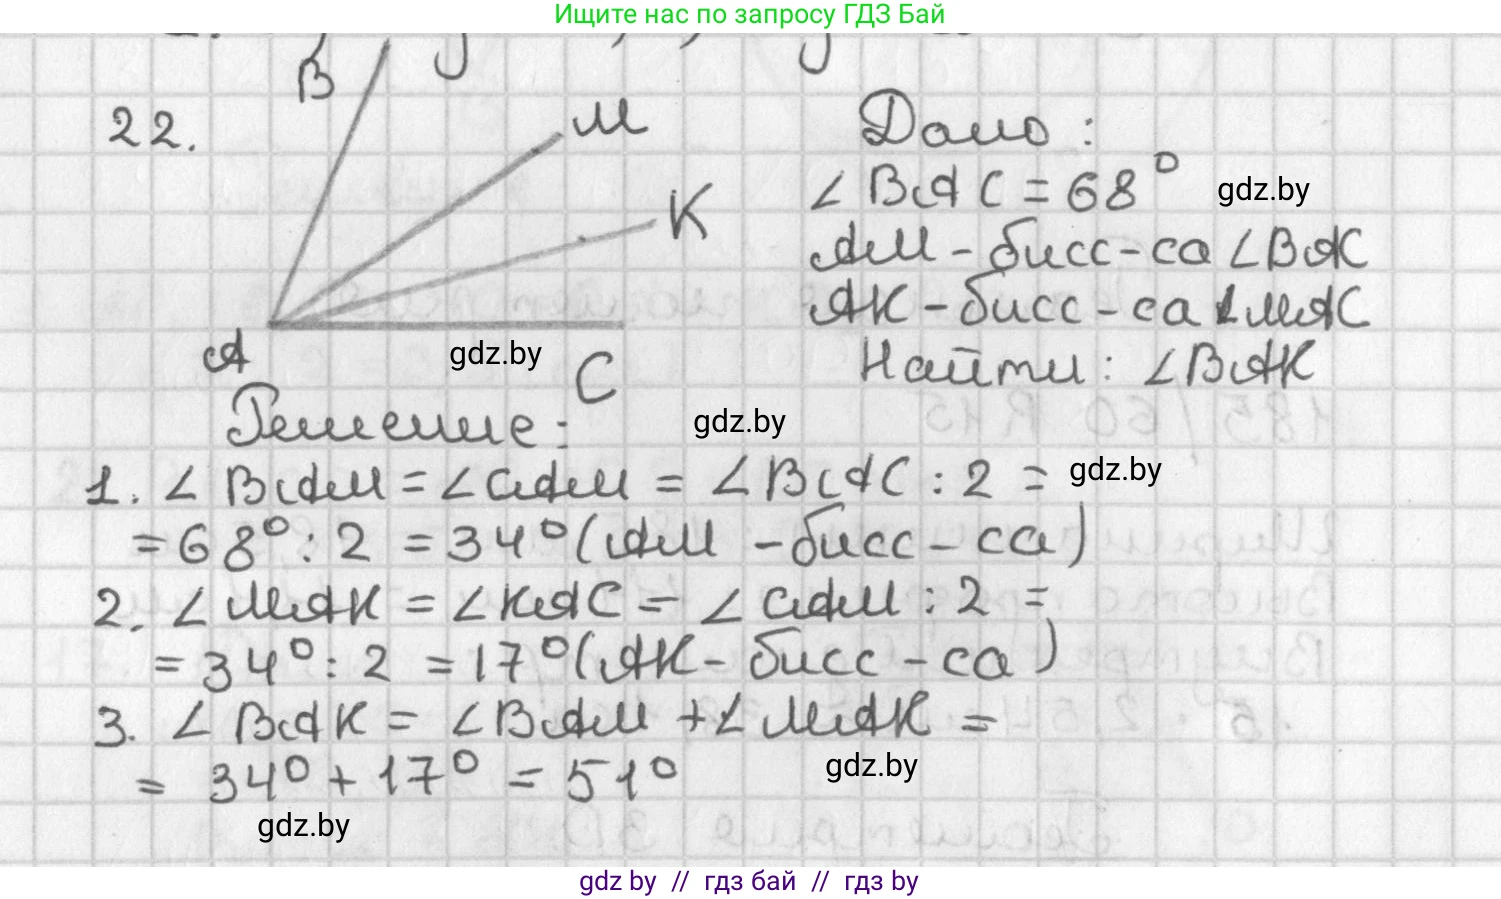 Ищите нас по запросу ГДЗ Бай
22.
B
M
K
A
C
Дано:
∠BAC = 68°
gdz.by
AM - бисс-са ∠BAC
AK - бисс-са ∠MAC
Найти: ∠BAK
gdz.by
Решение:
gdz.by
1. ∠BAM = ∠CAM = ∠BAC : 2 =
gdz.by
= 68° : 2 = 34° (AM - бисс-са)
2. ∠MAK = ∠KAC = ∠CAM : 2 =
= 34° : 2 = 17° (AK - бисс-са)
3. ∠BAK = ∠BAM + ∠MAK =
gdz.by
= 34° + 17° = 51°
gdz.by
gdz by // гдз бай // гдз by